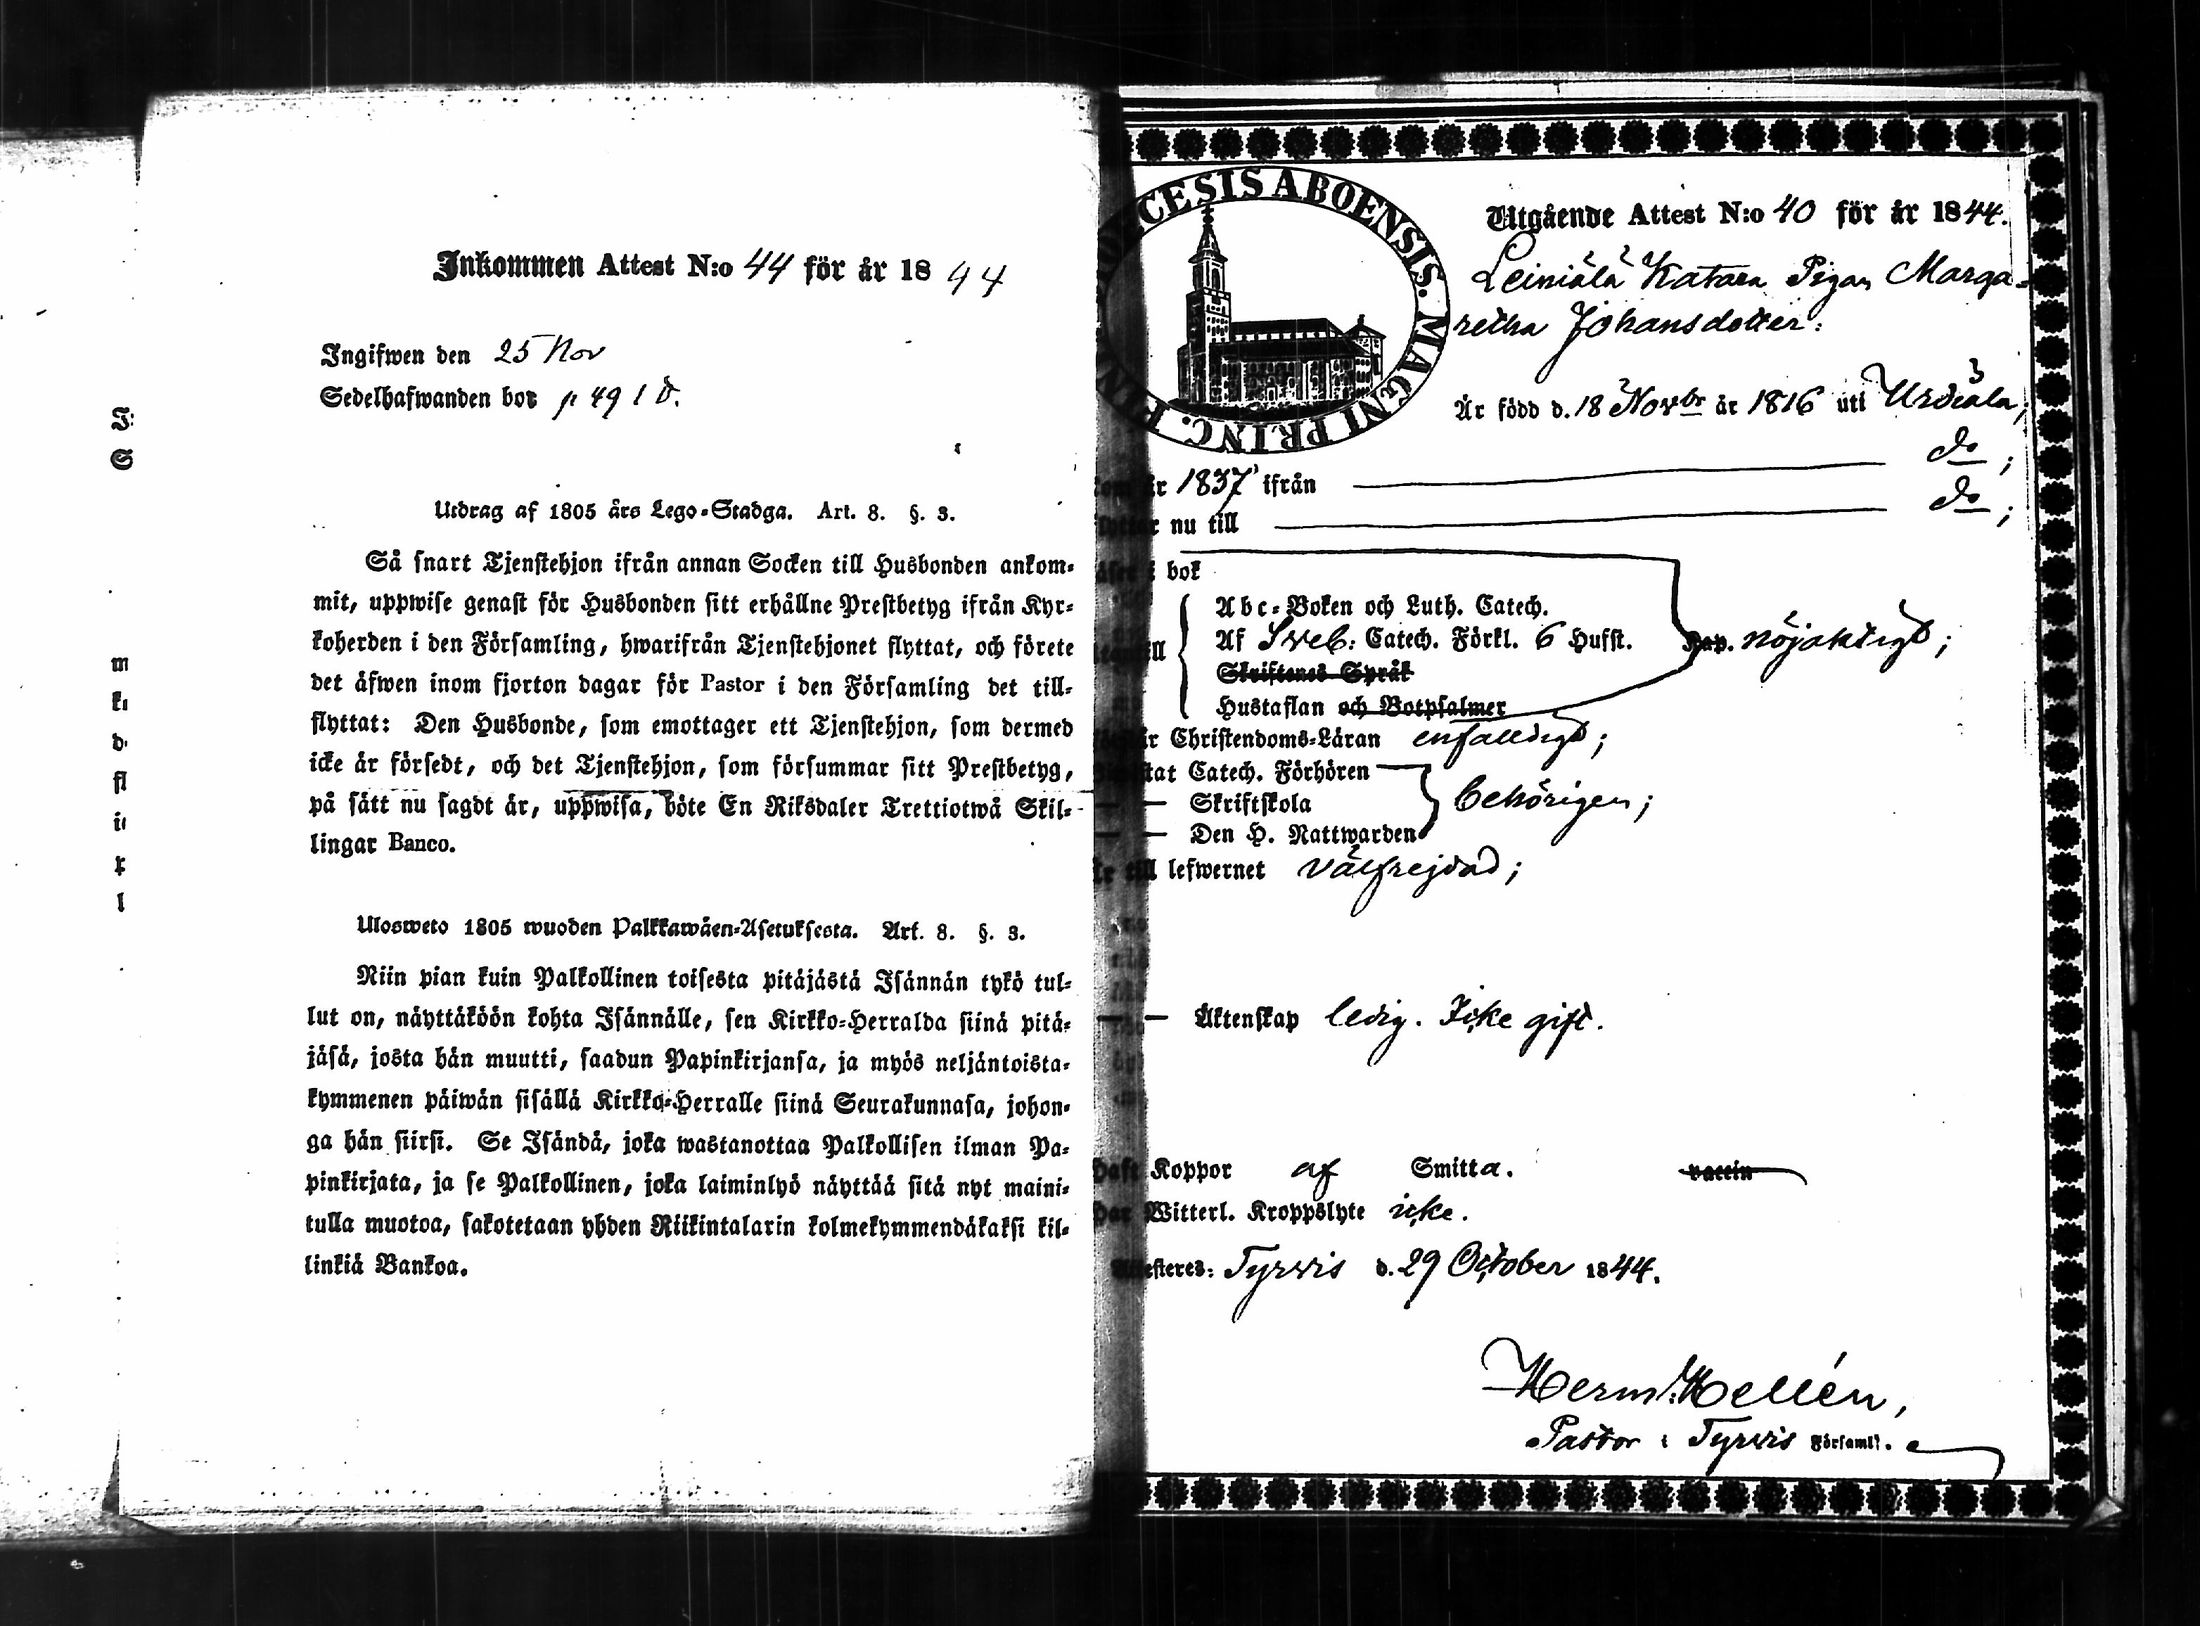 Inkommen Attest N:o 44 för år 18 44
Ingifwen den 25 Nov
Sedelhafwanden bor p 491 d.
Utdrag af 1805 års Lego-Stadga. Art. 8. §. 3.
Så snart Tjenstehjon ifrån annan Socken till Husbonden ankom-
mit, uppwise genast för Husbonden sitt erhållne Prestbetyg ifrån Kyr-
koherden i den Församling, hwarifrån Tjenstehjonet flyttat, och förete
det äfwen inom fjorton dagar för Pastor i den Församling det till-
flyttat: Den Husbonde, som emottager ett Tjenstehjon, som dermed
icke är försedt, och det Tjenstehjon, som försummar sitt Prestbetyg,
på sätt nu sagdt är, uppwisa, böte En Riksdaler Trettiotwå Skil-
lingar Banco.
Ulosweto 1805 wuoden Palkkawäen-Asetuksesta. Art. 8. §. 3.
Niin pian kuin Palkollinen toisesta pitäjästä Isännän tykö tul-
lut on, näyttäköön kohta Isännälle, sen Kirkko-Herralda siinä pitä-
jäsä, josta hän muutti, saadun Papinkirjansa, ja myös neljäntoista-
kymmenen päiwän sisällä Kirkko-Herralle siinä Seurakunnasa, johon-
ga hän siirsi. Se Isändä, joka wastanottaa Palkollisen ilman Pa-
pinkirjata, ja se Palkollinen, joka laiminlyö näyttää sitä nyt maini-
tulla muotoa, sakotetaan yhden Riikintalarin kolmekymmendäkaksi kil-
linkiä Bankoa.
CESIS ABOENSIS. MAGNI PRINC. FIN
Utgående Attest N:o 40 för år 1844.
Leiniälä Katara Pigan Marga-
retha Johansdotter:
Är född d. 18 Novbr år 1816 uti Urdiala;
år 1837 ifrån do;
nu till do;
i bok
Abc-Boken och Luth. Catech.
Af Sveb: Catech. Förkl. 6 Hufst. Kap. nöjaktigt;
Skriftenes Språk
Hustaflan och Botpsalmer
Christendoms-Läran enfaldigt;
Catech. Förhören
— Skriftskola behörigen;
— Den H. Nattwarden
till lefwernet välfrejdad;
— Äktenskap ledig. Icke gift.
Haft Koppor af Smitta. vaccin
Har Witterl. Kroppslyte icke.
Attesteres: Tyrvis d. 29 October 1844.
Herm: Hellén,
Pastor i Tyrvis Församl.